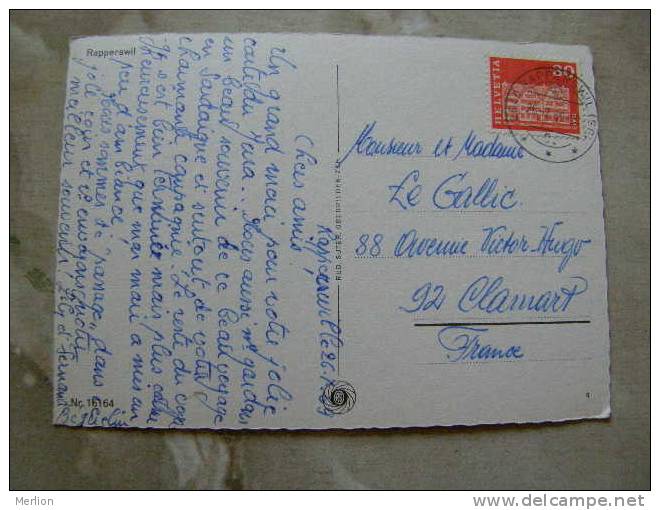 Rapperswil
Rapperswil le 26.
Chers amis,
Un grand merci pour votre jolie
carte du Jura.. Nous aussi ns gardons
un beau souvenir de ce beau voyage
en Sardaigne et surtout de votre
charmante compagnie. Le reste du
s'est bien terminé mais plus calme
Heureusement que mon mari a mis un
peu d'ambiance.
Nous sommes de passage dans ce
joli coin et vs envoyons notre
meilleur souvenir. et
Nr. 16164
RUD. SUTER, OBERRIEDEN-ZCH.
HELVETIA
30
Monsieur et Madame
Le Gallic
88 Avenue Victor-Hugo
92 Clamart
France
4
Merlion
www.delcampe.net